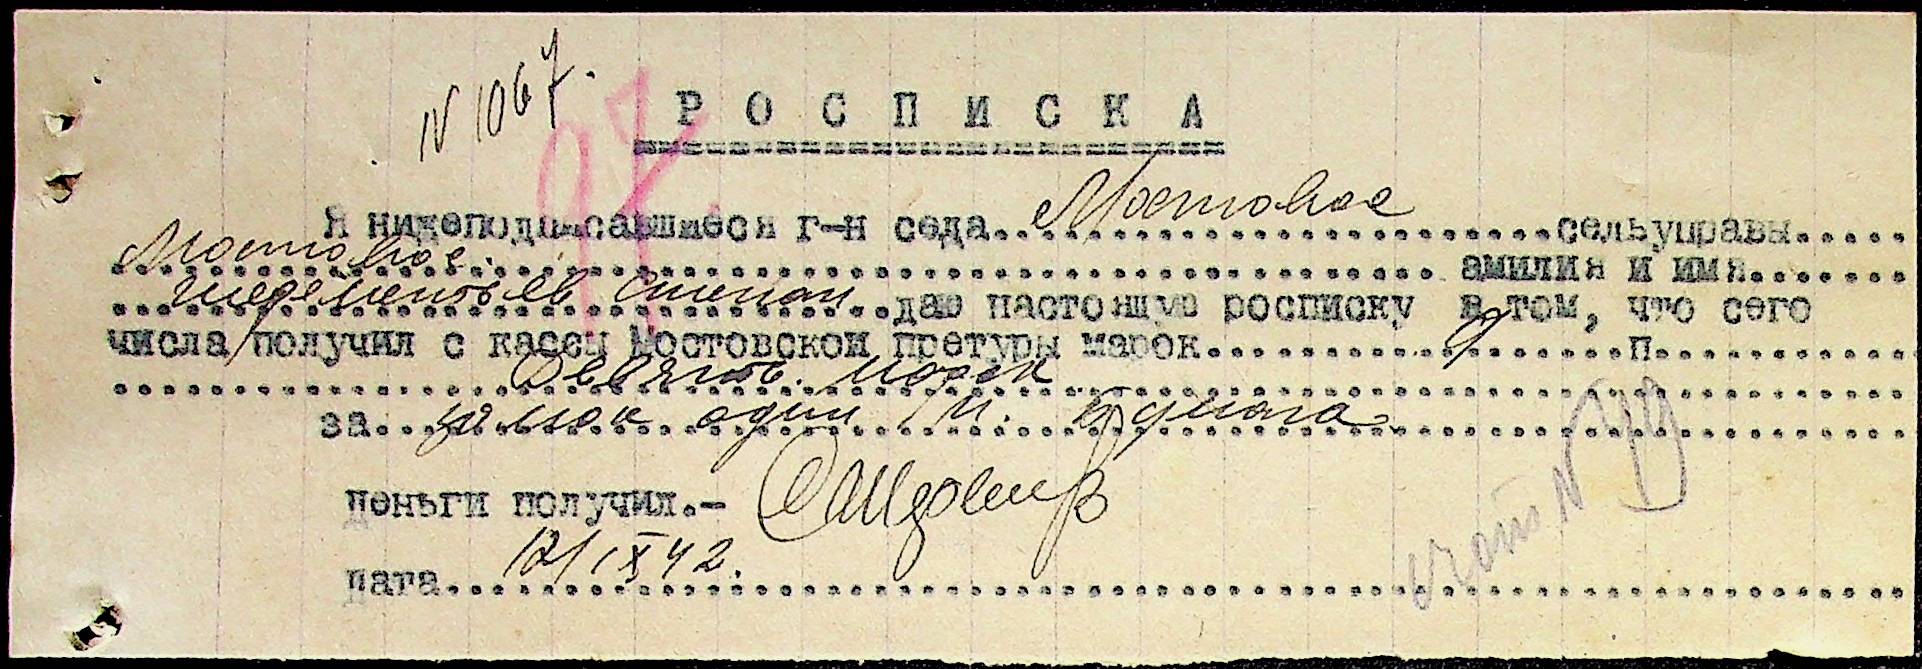 N 1067.
97
РОСПИСКА
Я нижеподписавшиеся г-н села...Мостовое...сельуправы.....
Мостовое...амилия и имя.......
...Шереметьев Степан...даю настоящую росписку в том, что сего
числа получил с кассы Мостовской претуры марок...9...п...........
Девять марок
за...замок один и бумага...
счет N 49
Деньги получил.-
дата...12/IX 42.